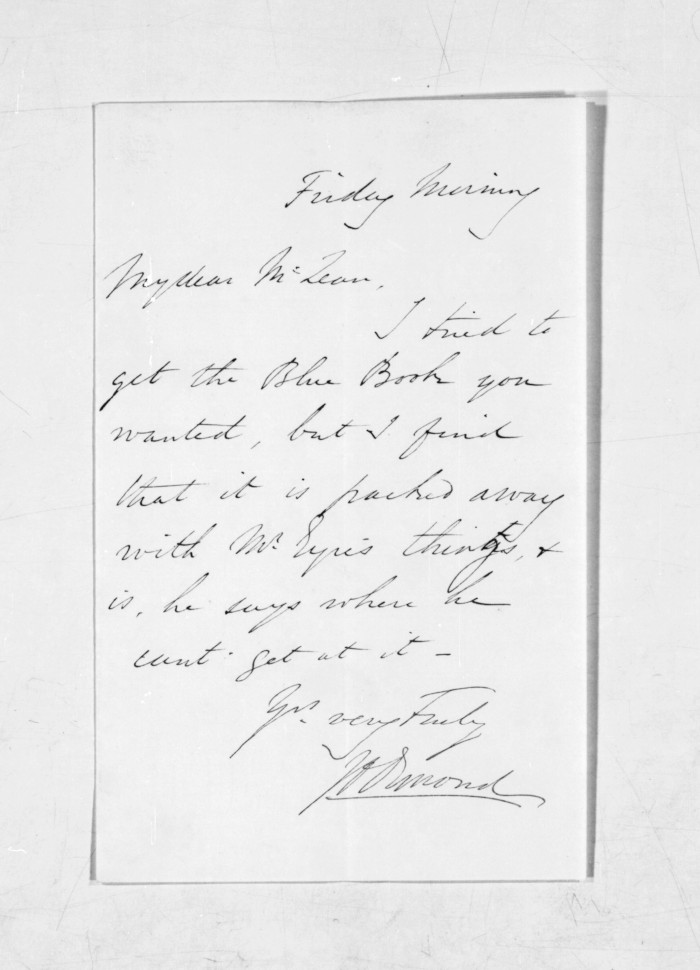 Friday Morning
My dear McLean,
I tried to
get the Blue Book you
wanted, but I find
that it is packed away
with Mr. Eyre's things, &
is, he says where he
cant get at it –
Yrs. very Truly
Ormond